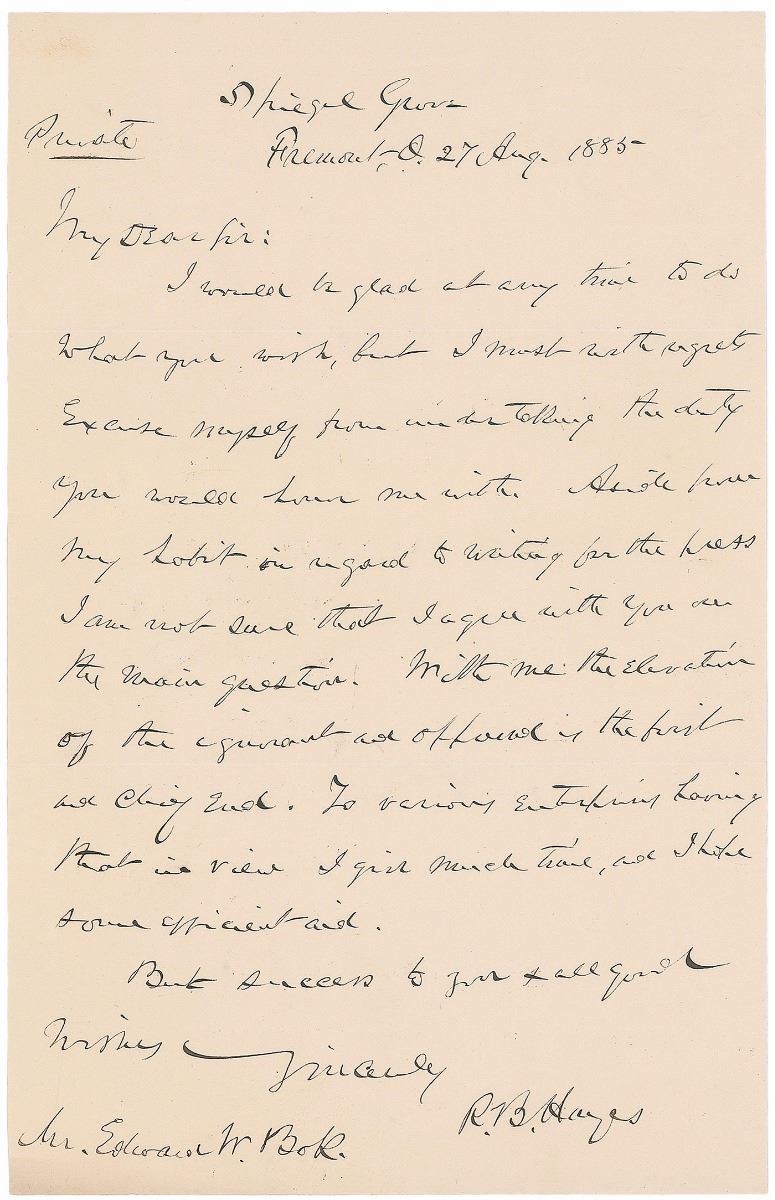 Spiegel Grove
Private
Fremont, O. 27 Aug. 1885
My Dear Sir:
I would be glad at any time to do
what you wish, but I must with regrets
Excuse myself from undertaking the duty
you would honor me with. Aside from
my habit in regard to writing for the press
I am not sure that I agree with you on
the main question. With me the Elevation
of the ignorant and is the first
and chief End. To various enterprises having
that in view I give much time, and I hope
some efficient aid.
But success to you & all good
wishes
Sincerely
R. B. Hayes
Mr. Edward W. Bok.